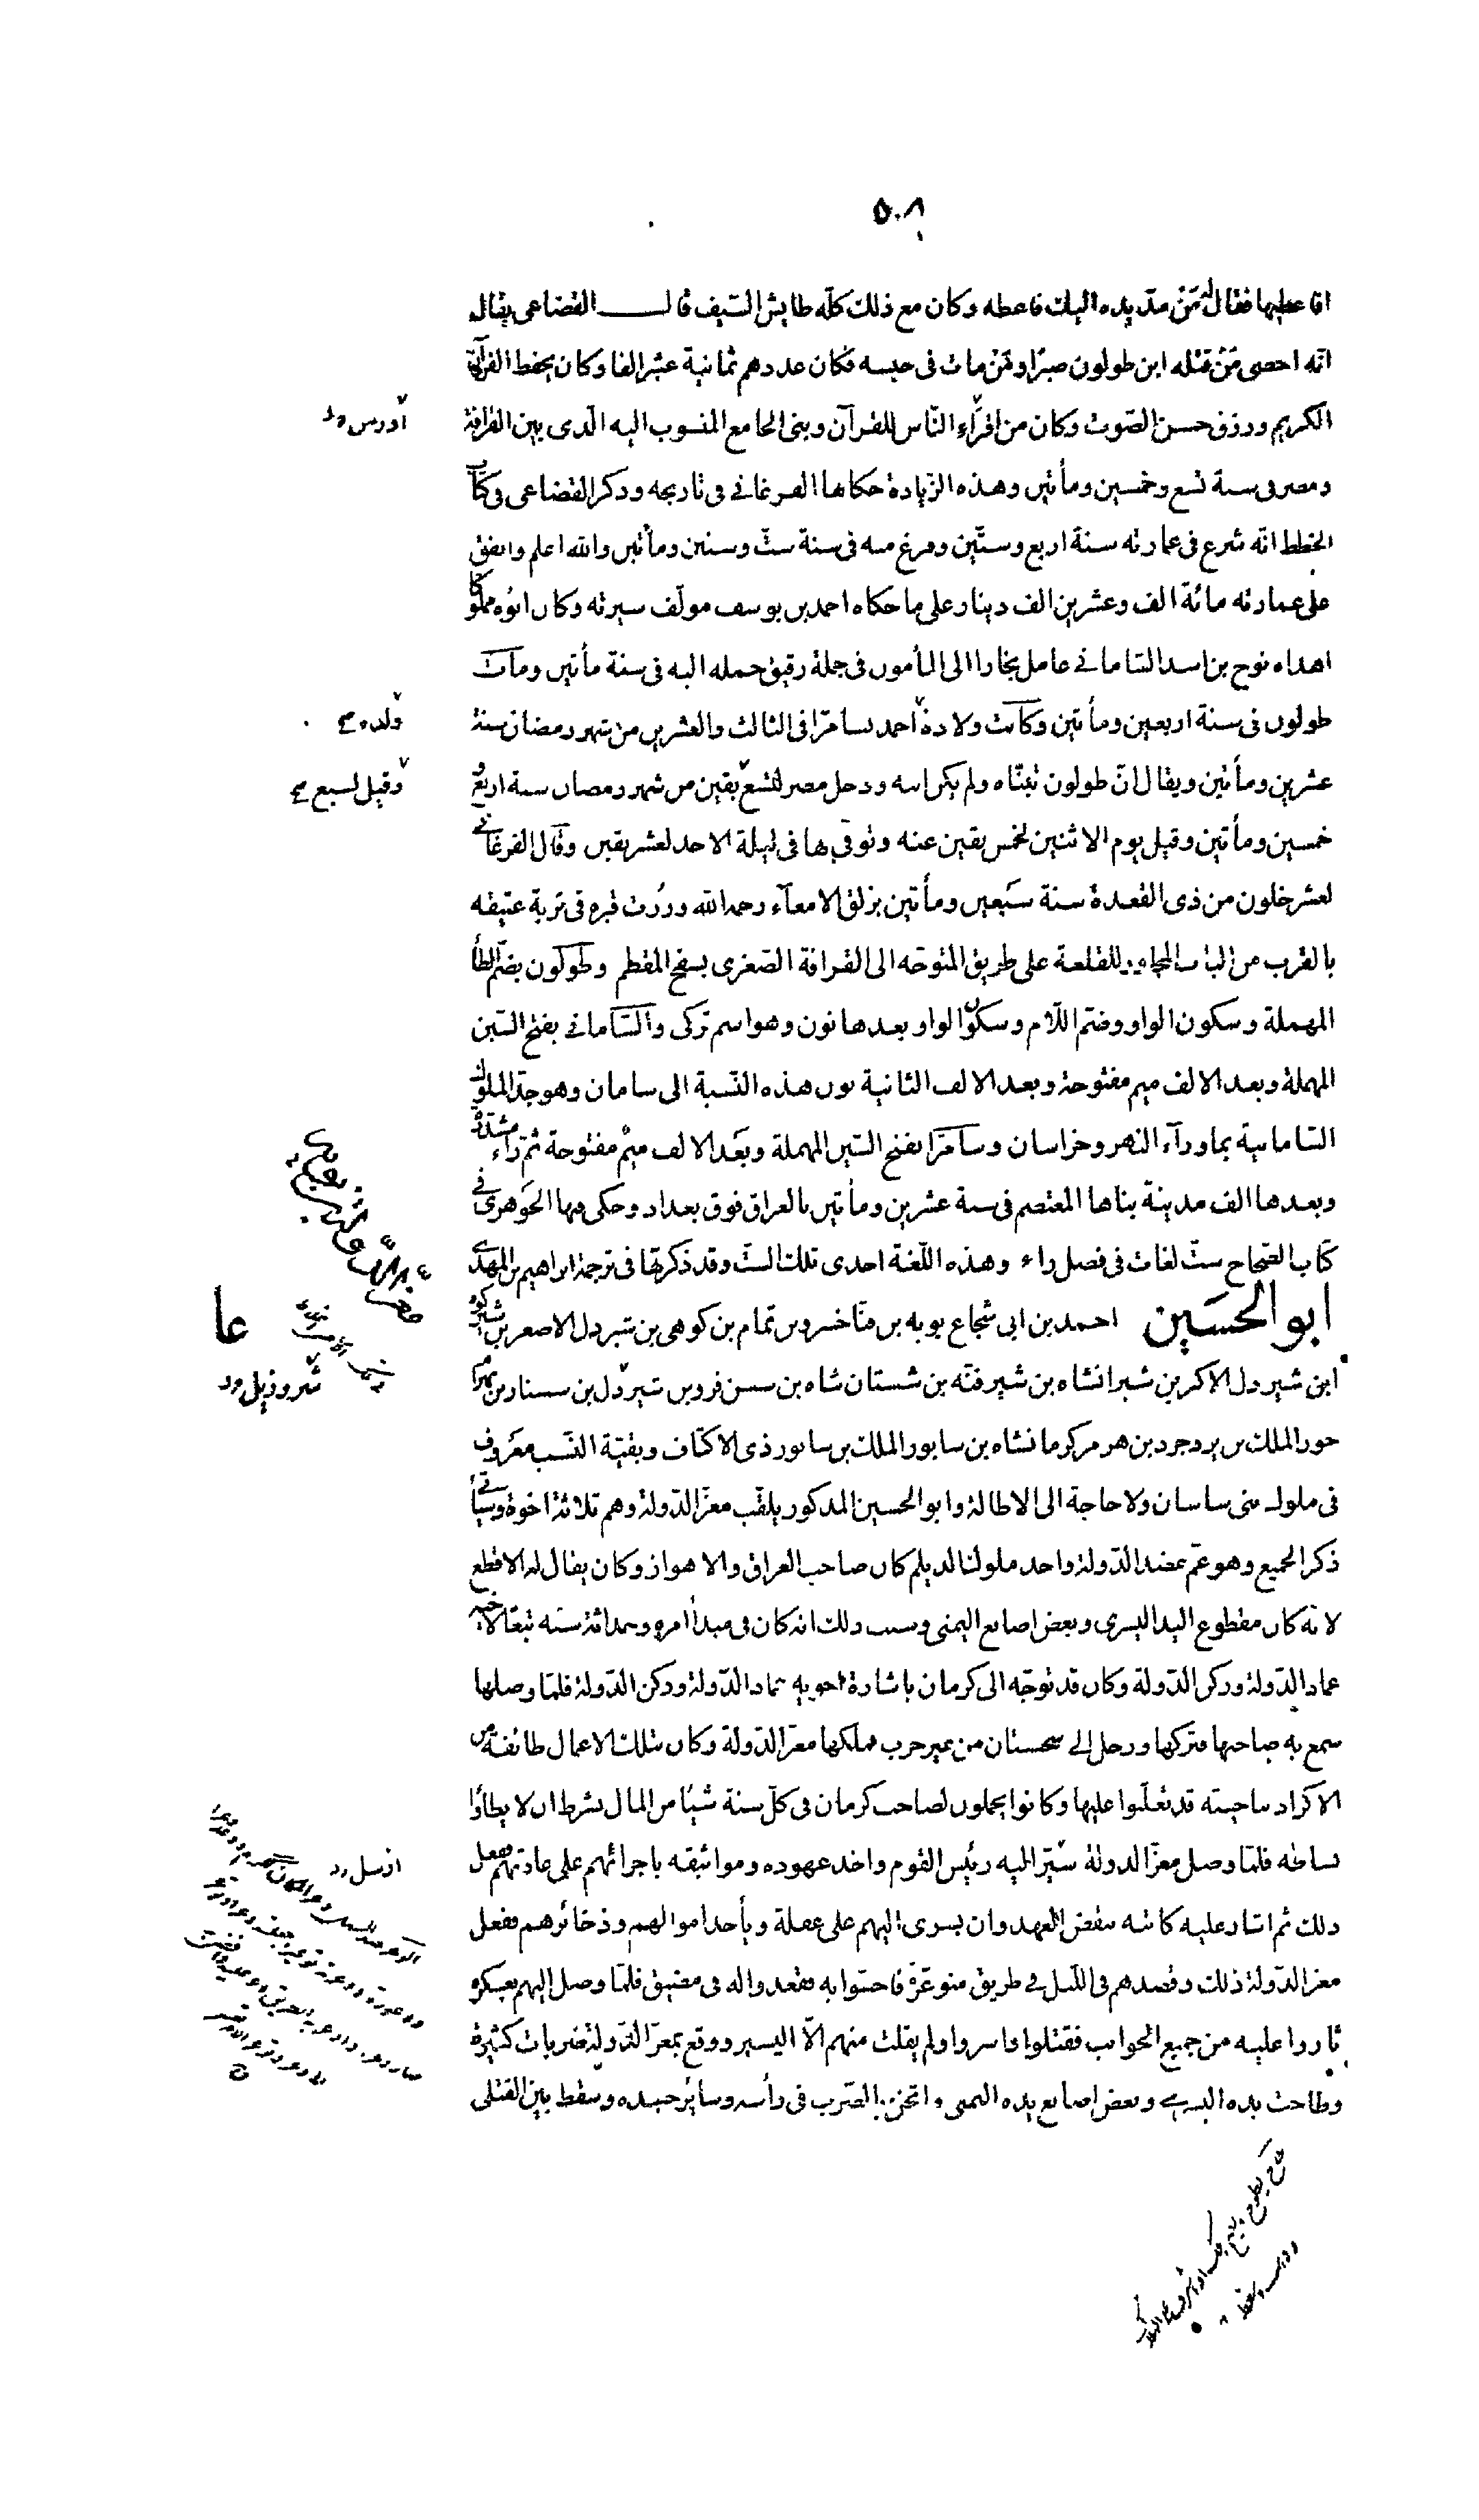 ٥٠٨
افاعطيها فقال لى من مدّ يده اليك فاعطه وكان مع ذلك كلّه طايش السّيف قال القضاعى يقال
انّه احصى مَن قتله ابن طولون صبرًا ومَن مات فى حبسه فكان عددهم ثمانية عشر الفا وكان يحفظ القرآن
الكريم ورزق حسن الصّوت وكان من اقراء النّاس للقرآن وبنى الجامع المنسوب اليه الّذى بين القرافة
ومصر فى سنة تسع وخمسين ومأتين وهذه الزّيادة حكاها الفرغانى فى تاريخه وذكر القضاعى فى كتاب
الخطط انّه شرع فى عمارته سنة اربع وستّين وفرغ منه فى سنة ستّ وستين ومأتين والله اعلم وانفق
على عمارته مائة الف وعشرين الف دينار على ما حكاه احمد بن يوسف مولّف سيرته وكان ابوه مملوكا
اهداه نوح بن اسد السّامانى عامل بخارا الى المأمون فى جملة رقيق حمله اليه فى سنة مأتين ومات
طولون فى سنة اربعين ومأتين وكانت ولادة احمد بسامرّا فى الثالث والعشرين من شهر رمضان سنة
ولده
عشرين ومأتين ويقال انّ طولون تبنّاه ولم يكن ابنه ودخل مصر لتسع بقين من شهر رمضان سنة اربع و
وقيل لسبع
خمسين ومأتين وقيل يوم الاثنين لخمس بقين عنه وتوفّى بها فى ليلة الاحد لعشر بقين وقال الفرغانى
لعشر خلون من ذى القعدة سنة سبعين ومأتين بزلق الامعآء رحمه الله وزرت قبره فى تربة عتيقه
بالقرب من الباب المجاور للقلعة على طريق المتوجّه الى القرافة الصّغرى بسفح المقطم وطولون بضمّ الطّأ
المهملة وسكون الواو وضمّ اللّام وسكون الواو بعدها نون وهو اسم تركى والسّامانى بفتح السّين
المهملة وبعد الالف ميم مفتوحة وبعد الالف الثانية نون هذه النّسبة الى سامان وهو جدّ الملوك
السّامانية بماورآء النهر وخراسان وسامرّا بفتح السّين المهملة وبعد الالف ميم مفتوحة ثم رآء مشدّدة
وبعدها الف مدينة بناها المعتصم فى سنة عشرين ومأتين بالعراق فوق بغداد وحكى فيها الجوهرى فى
كتاب الصّحاح ستّ لغات فى فصل راء وهذه اللّغة احدى تلك السّت وقد ذكرتها فى ترجمة ابراهيم بن المهدى
ابو الحسين احمد بن ابى شجاع بويه بن فنّاخسرو بن تمام بن كوهى بن شيردل الاصغر بن شيركوه
ابن شيردل الاكبر بن شيرانشاه بن شيرفنّه بن شستان شاه بن سسن فرو بن شيرذل بن سسناد بن بهرام
جور الملك بن يزدجرد بن هرمز كرمانشاه بن سابور الملك بن سابور ذى الاكتاف وبقيّة النّسب معروف
فى ملوك بنى ساسان ولا حاجة الى الاطالة وابو الحسين المذكور يلقّب معزّ الدّولة وهم ثلاثة اخوة وسيأتى
ذكر الجميع وهو عمّ عضد الدّولة واحد ملوك الديلم كان صاحب العراق والاهواز وكان يقال له الاقطع
لانّه كان مقطوع اليد اليسرى وبعض اصابع اليمنى وسبب ذلك انه كان فى مبدأ امره وحداثة سنّه تبعًا لاخيه
عماد الدّولة وركن الدّولة وكان قد توجّه الى كرمان باشارة اخويه عماد الدّولة وركن الدّولة فلمّا وصلها
سمع به صاحبها فتركها ورحل الى سجستان من غير حرب فملكها معزّ الدّولة وكان بتلك الاعمال طائفة من
الاكراد بناحيته قد تغلّبوا عليها وكانوا يحملون لصاحب كرمان فى كلّ سنة شيئًا من المال بشرط ان لا يطأوا
بساطه فلمّا وصل معزّ الدولة سيّر اليه رئيس القوم واخذ عهوده ومواثيقه باجرائهم على عادتهم ففعل
ذلك ثم اشار عليه كاتبه بنقض العهد وان يسرى اليهم على غفلة ويأخذ اموالهم وذخائرهم ففعل
معزّ الدّولة ذلك وقصدهم فى اللّيل فى طريق متوعّرة فاحسّوا به فقعدوا له فى مضيق فلمّا وصل اليهم بعسكره
ثاروا عليه من جميع الجوانب فقتلوا واسروا ولم يفلت منهم الّا اليسير ووقع بمعزّ الدّولة ضربات كثيرة
وطاحت يده اليسرى وبعض اصابع يده اليمنى واثخن بالضّرب فى رأسه وسائر جسده وسقط بين القتلى